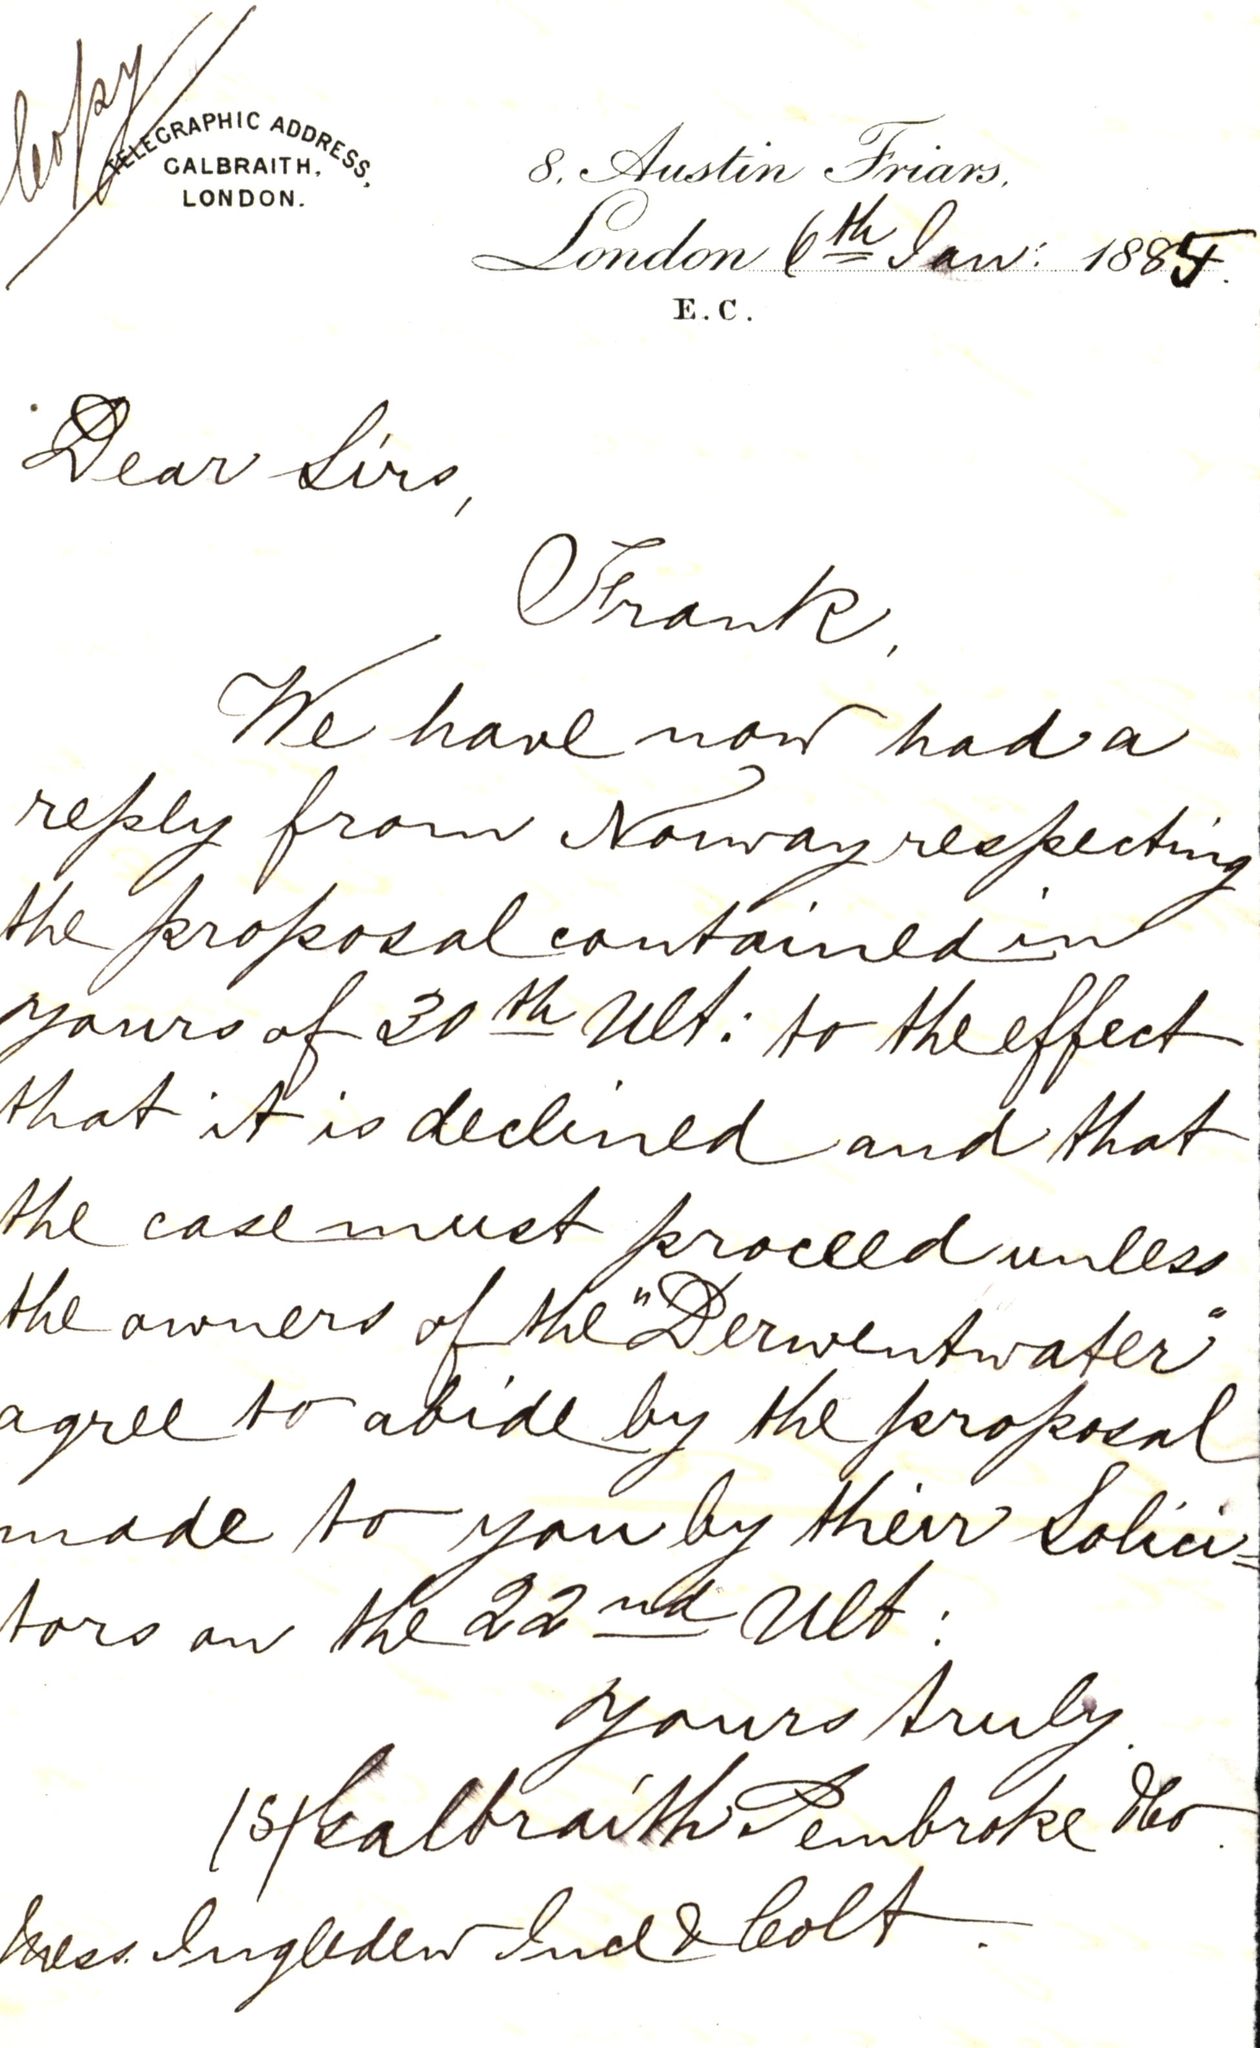 Copy
TELEGRAPHIC ADDRESS,
GALBRAITH,
LONDON.
8, Austin Friars,
London 6th Jan: 1885.
E.C.
Dear Sirs,
Frank,
We have now had a
reply from Norway respecting
the proposal contained in
yours of 30th Ult: to the effect
that it is declined and that
the case must proceed unless
the owners of the "Derwentwater"
agree to abide by the proposal
made to you by their Solici=
tors on the 22nd Ult:
Yours truly
(S) Galbraith Pembroke & Co.
Mess. Ingledew Ince & Colt.